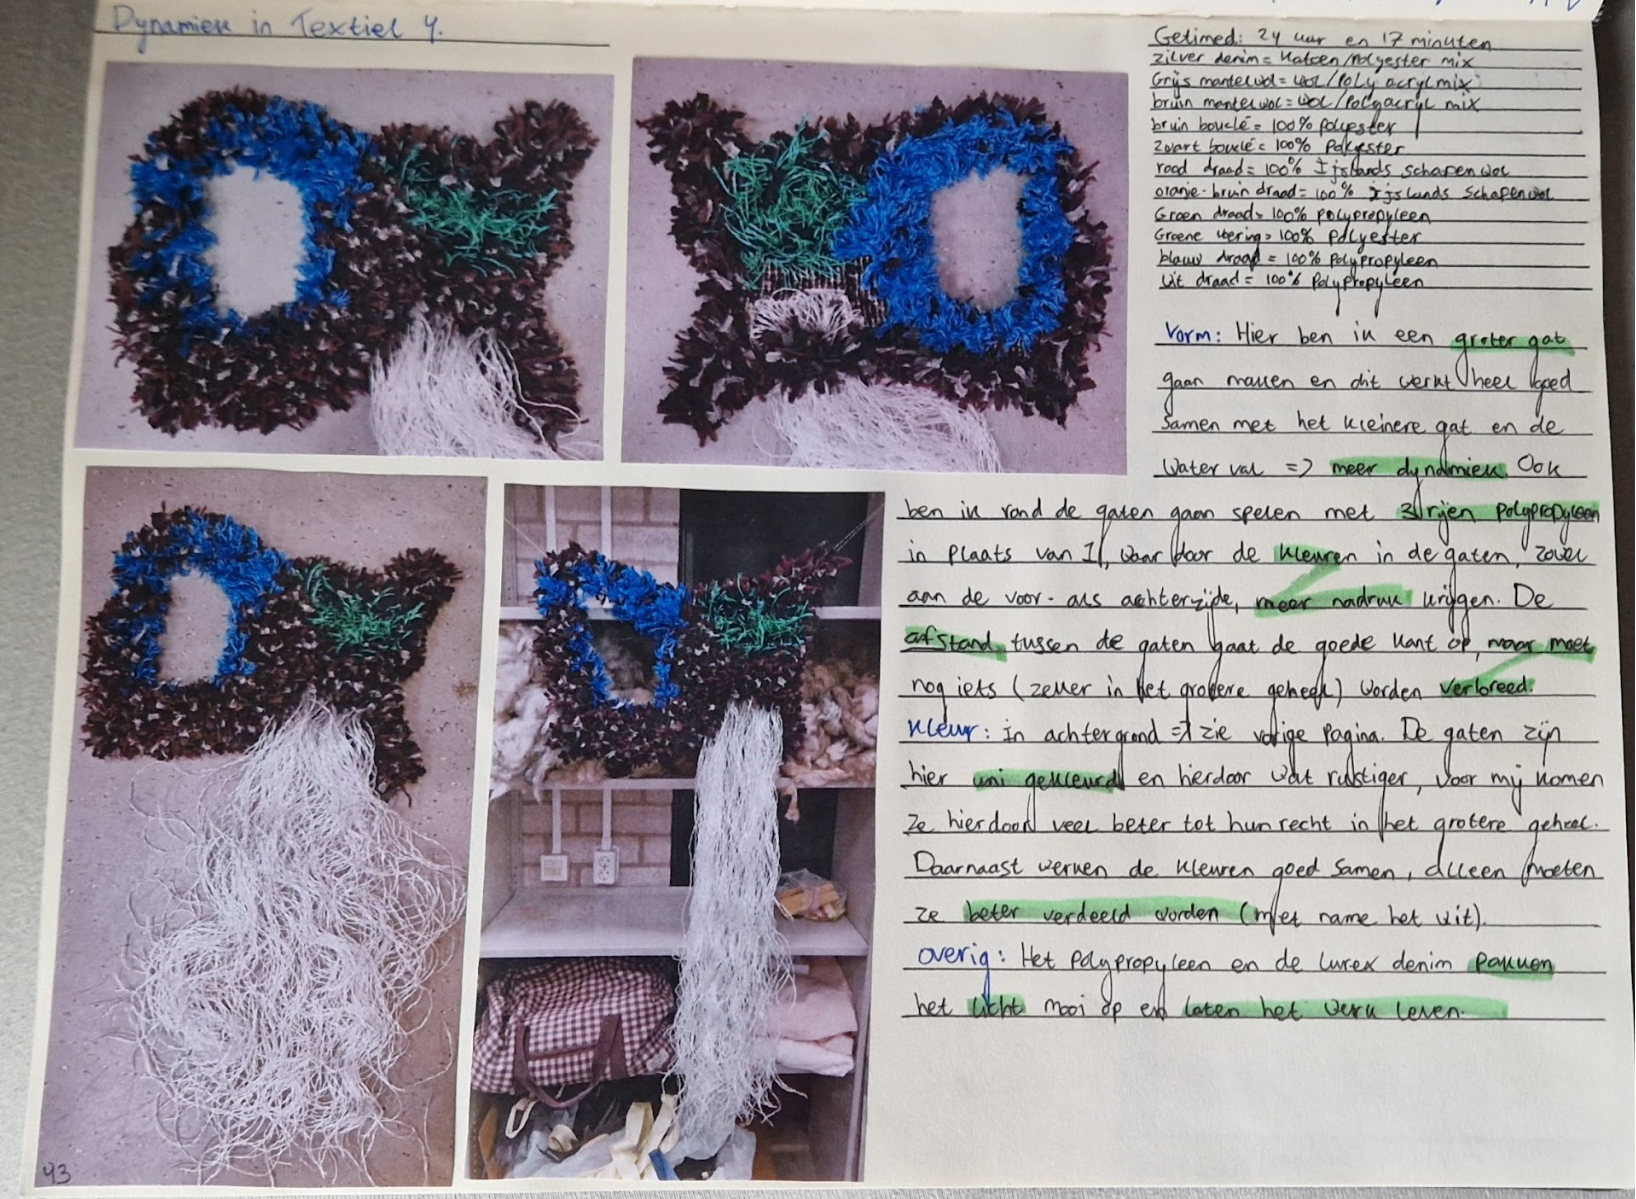 Dynamiek in Textiel 4.
Getimed: 24 uur en 17 minuten
zilver denim = Katoen/Polyester mix
Grijs mantelwol = wol/Poly acryl mix
bruin mantelwol = wol/Polyacryl mix
bruin bouclé = 100% Polyester
Zwart bouclé = 100% Polyester
rood draad = 100% Ijslands schapenwol
oranje-bruin draad = 100% Ijslands schapenwol
Groen draad = 100% polypropyleen
Groene = 100% polyester
blauw draad = 100% Polypropyleen
Wit draad = 100% Polypropyleen
Vorm: Hier ben ik een groter gat
gaan maken en dit werkt heel goed
samen met het kleinere gat en de
Waterval => meer dynamiek. Ook
ben ik rond de gaten gaan spelen met 3 rijen polypropyleen
in plaats van 1, waardoor de kleuren in de gaten, zowel
aan de voor- als achterzijde, meer nadruk krijgen. De
afstand tussen de gaten gaat de goede kant op, maar moet
nog iets (zeker in het grotere geheel) worden verbreed.
Kleur: In achtergrond => zie vorige pagina. De gaten zijn
hier uni gekleurd en hierdoor wat rustiger, voor mij komen
ze hierdoor veel beter tot hun recht in het grotere geheel.
Daarnaast werken de kleuren goed samen, alleen moeten
ze beter verdeeld worden (met name het wit).
overig: Het polypropyleen en de lurex denim pakken
het licht mooi op en laten het werk leven.
43